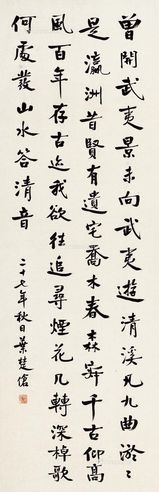 曾聞武夷景未向武夷遊清溪凡九曲淤〻
是瀛洲昔賢有遺宅喬木春森森千古仰高
風百年存古迹我欲往追尋煙花几轉深棹歌
何處發山水答清音
二十七年秋日葉楚傖